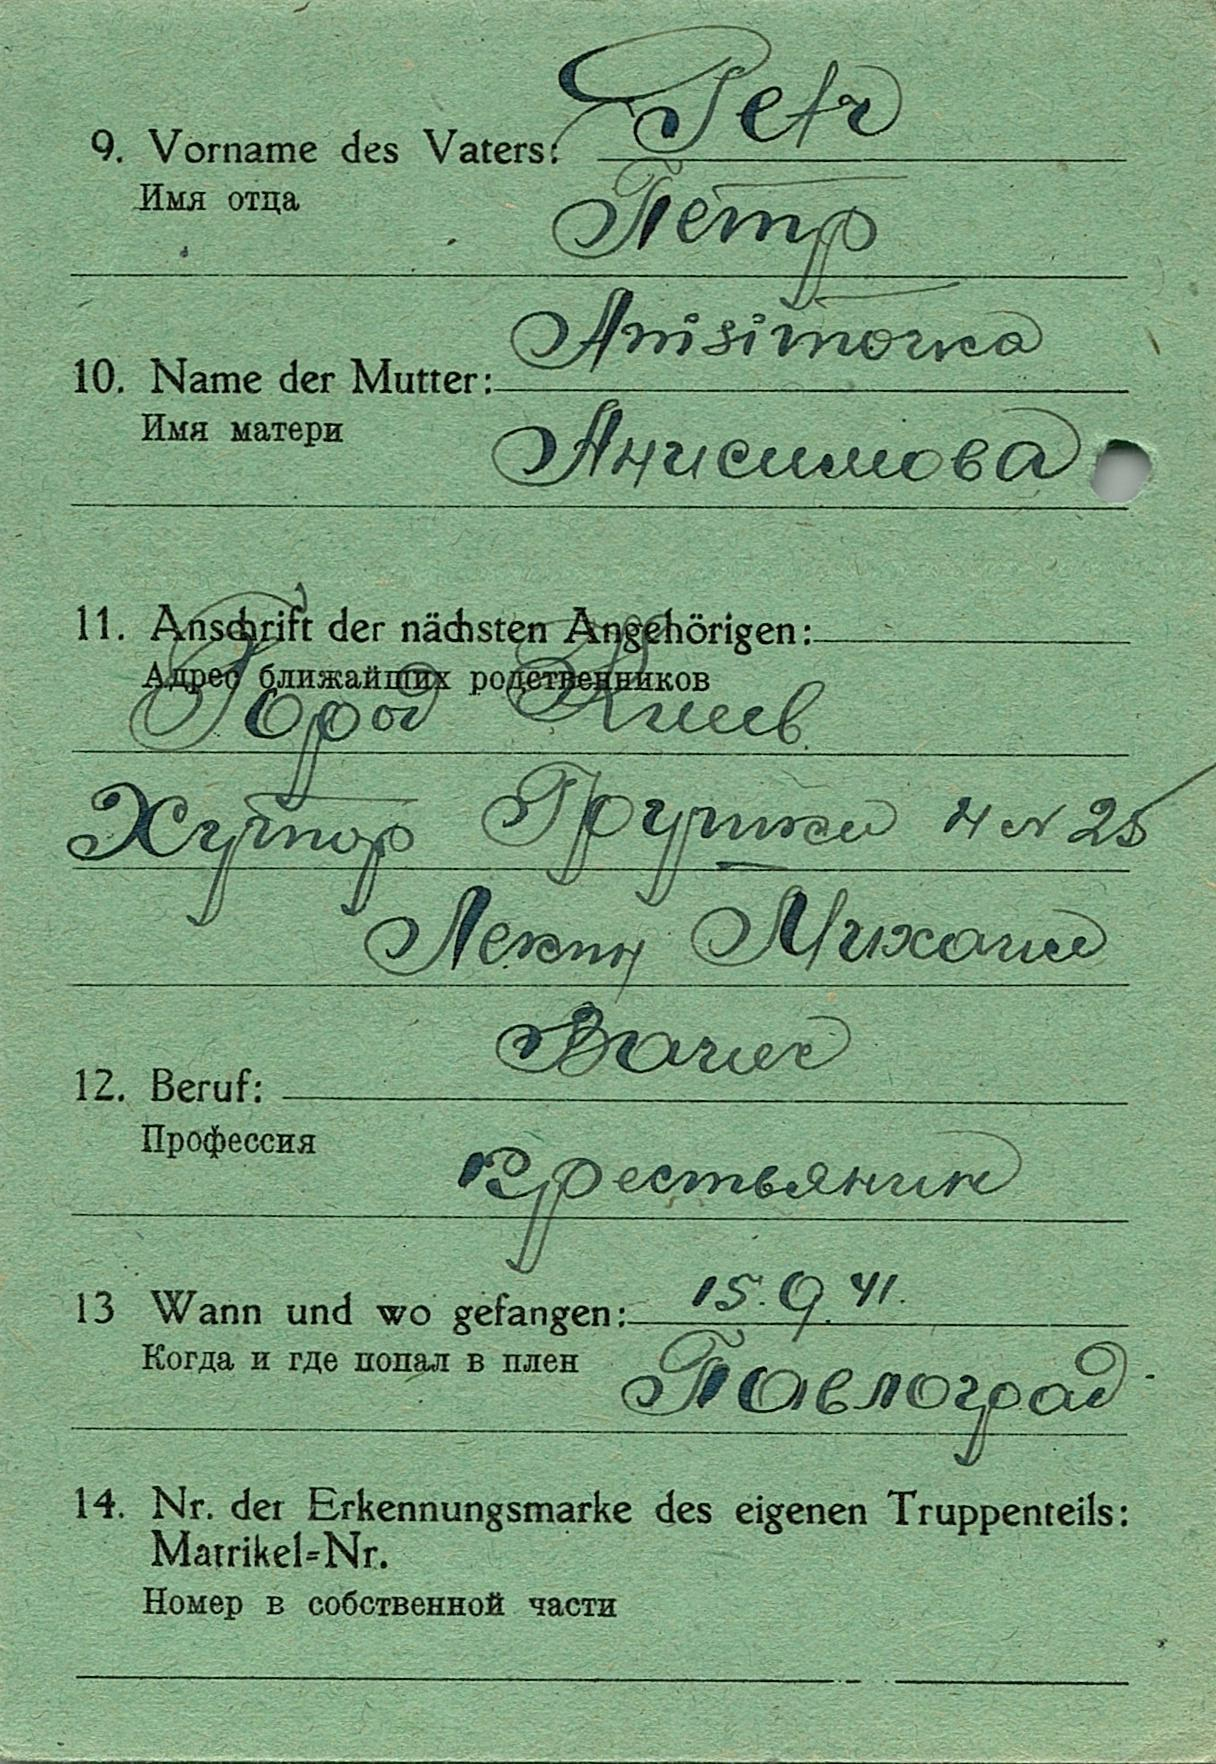 Petr
9. Vorname des Vaters:
Имя отца
Петр
Anisimowa
10. Name der Mutter:
Имя матери
Анисимова
11. Anschrift der nächsten Angehörigen:
Адрес ближайших родственников
Город Киев
Хутор Грушки 25
Михаил
12. Beruf:
Профессия
Крестьянин
13 Wann und wo gefangen: 15.9.41.
Когда и где попал в плен
Павлоград
14. Nr. der Erkennungsmarke des eigenen Truppenteils:
Matrikel=Nr.
Номер в собственной части